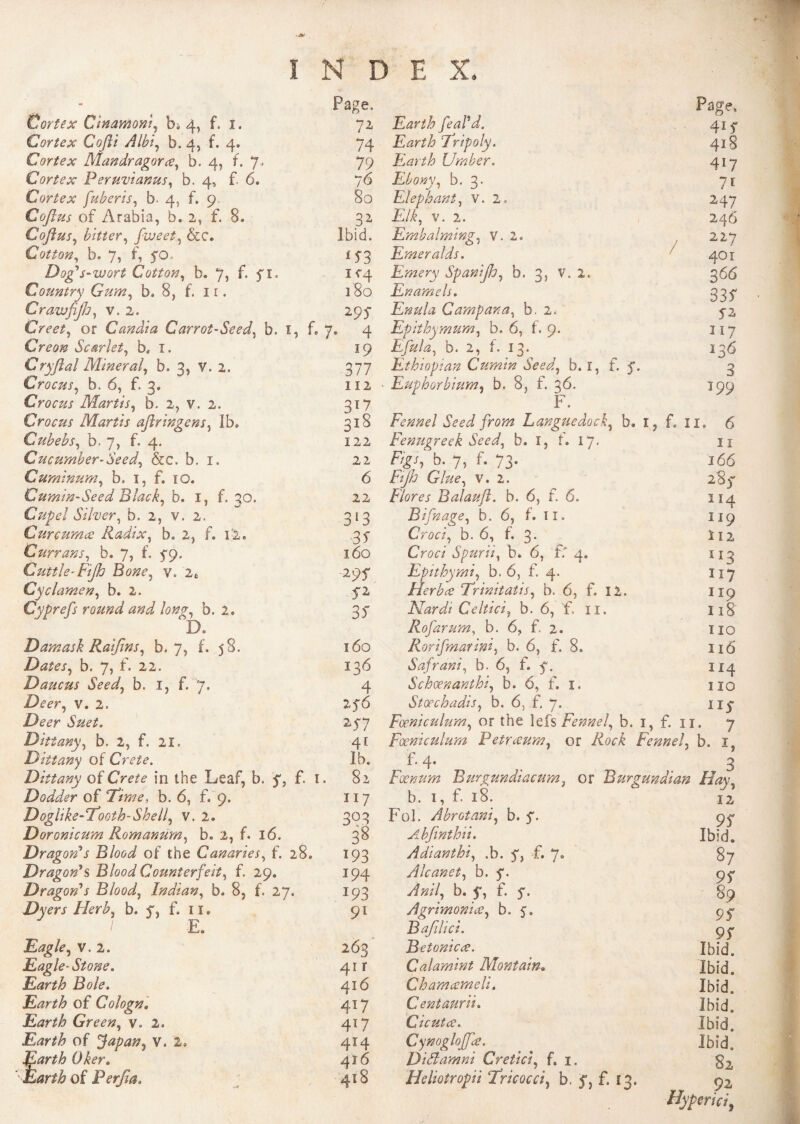 INDEX.
Page.
Cortex Cinamoni, b. 4, f. 1. 72
Cortex Cofti Albi, b. 4, f. 4. 74
Cortex Mandragoræ, b. 4, f. 7. 79
Cortex Peruvianus, b. 4, f. 6. 76
Cortex ſuberis, b. 4, f. 9. 80
Coſtus of Arabia, b. 2, f. 8. 32
Coſtus, bitter, ſweet, &c. Ibid.
Cotton, b. 7, f, 50. 153
Dog's-wort Cotton, b. 7, f. 51. 154
Country Gum, b. 8, f. 11. 180
Crawfiſh, v. 2. 295
Creet, or Candia Carrot-Seed, b. 1, f. 7. 4
Creon Scarlet, b. 1. 19
Cryſtal Mineral, b. 3, v. 2. 377
Crocus, b. 6, f. 3. 112
Crocus Martis, b. 2, v. 2. 317
Crocus Martis aſtringens, Ib. 318
Cubebs, b. 7, f. 4. 122
Cucumber-Seed, &c. b. 1. 22
Cuminum, b. 1, f. 10. 6
Cumin-Seed Black, b. 1, f. 30. 22
Cupel Silver, b. 2, v. 2. 313
Curcumæ Radix, b. 2, f. 12. 35
Currans, b. 7, f. 59. 160
Cuttle-Fiſh Bone, v. 2. 295
Cyclamen, b. 2. 52
Cypreſs round and long, b. 2. 35
D.
Damask Raiſins, b. 7, f. 58. 160
Dates, b. 7, f. 22. 136
Daucus Seed, b. 1, f. 7. 4
Deer, v. 2. 256
Deer Suet. 257
Dittany, b. 2, f. 21. 41
Dittany of Crete. Ib.
Dittany of Crete in the Leaf, b. 5, f. 1. 82
Dodder of Time, b. 6, f. 9. 117
Doglike-Tooth-Shell, v. 2. 303
Doronicum Romanum, b. 2, f. 16. 38
Dragon's Blood of the Canaries, f. 28. 193
Dragon's Blood Counterfeit, f. 29. 194
Dragon's Blood, Indian, b. 8, f. 27. 193
Dyers Herb, b. 5, f. 11. 91
E.
Eagle, v. 2. 263
Eagle-Stone. 411
Earth Bole. 416
Earth of Cologn. 417
Earth Green, v. 2. 417
Earth of Japan, v. 2. 414
Earth Oker. 416
Earth of Perſia. 418
Page.
Earth ſeal'd. 415
Earth Tripoly. 418
Earth Umber. 417
Ebony, b. 3. 71
Elephant, v. 2. 247
Elk, v. 2. 246
Embalming, v. 2. 227
Emeralds. 401
Emery Spaniſh, b. 3, v. 2. 366
Enamels. 335
Enula Campana, b. 2. 52
Epithymum, b. 6, f. 9. 117
Eſula, b. 2, f. 13. 136
Ethiopian Cumin Seed, b. 1, f. 5. 3
Euphorbium, b. 8, f. 36. 199
F.
Fennel Seed from Languedock, b. 1, f. 11. 6
Fenugreek Seed, b. 1, f. 17. 11
Figs, b. 7, f. 73. 166
Fiſh Glue, v. 2. 285
Flores Balauſt. b. 6, f. 6. 114
Biſnage, b. 6, f. 11. 119
Croci, b. 6, f. 3. 112
Croci Spurii, b. 6, f. 4. 113
Epithymi, b. 6, f. 4. 117
Herbæ Trinitatis, b. 6, f. 12. 119
Nardi Celtici, b. 6, f. 11. 118
Roſarum, b. 6, f. 2. 110
Roriſmarini, b. 6, f. 8. 116
Safrani, b. 6, f. 5. 114
Schœnanthi, b. 6, f. 1. 110
Stœchadis, b. 6, f. 7. 115
Fœniculum, or the leſs Fennel, b. 1, f. 11. 7
Fœniculum Petræum, or Rock Fennel, b. 1,
f. 4. 3
Fœnum Burgundiacum, or Burgundian Hay,
b. 1, f. 18. 12
Fol. Abrotani, b. 5. 95
Abſinthii. Ibid.
Adianthi, .b. 5, f. 7. 87
Alcanet, b. 5. 95
Anil, b. 5, f. 5. 89
Agrimoniæ, b. 5. 95
Baſilici. 95
Betonicæ. Ibid.
Calamint Montain. Ibid.
Chamæmeli. Ibid.
Centaurii. Ibid.
Cicutæ. Ibid.
Cynogloſſæ. Ibid.
Dictamni Cretici, f. 1. 82
Heliotropii Tricocci, b. 5, f. 13. 92
Hyperici,